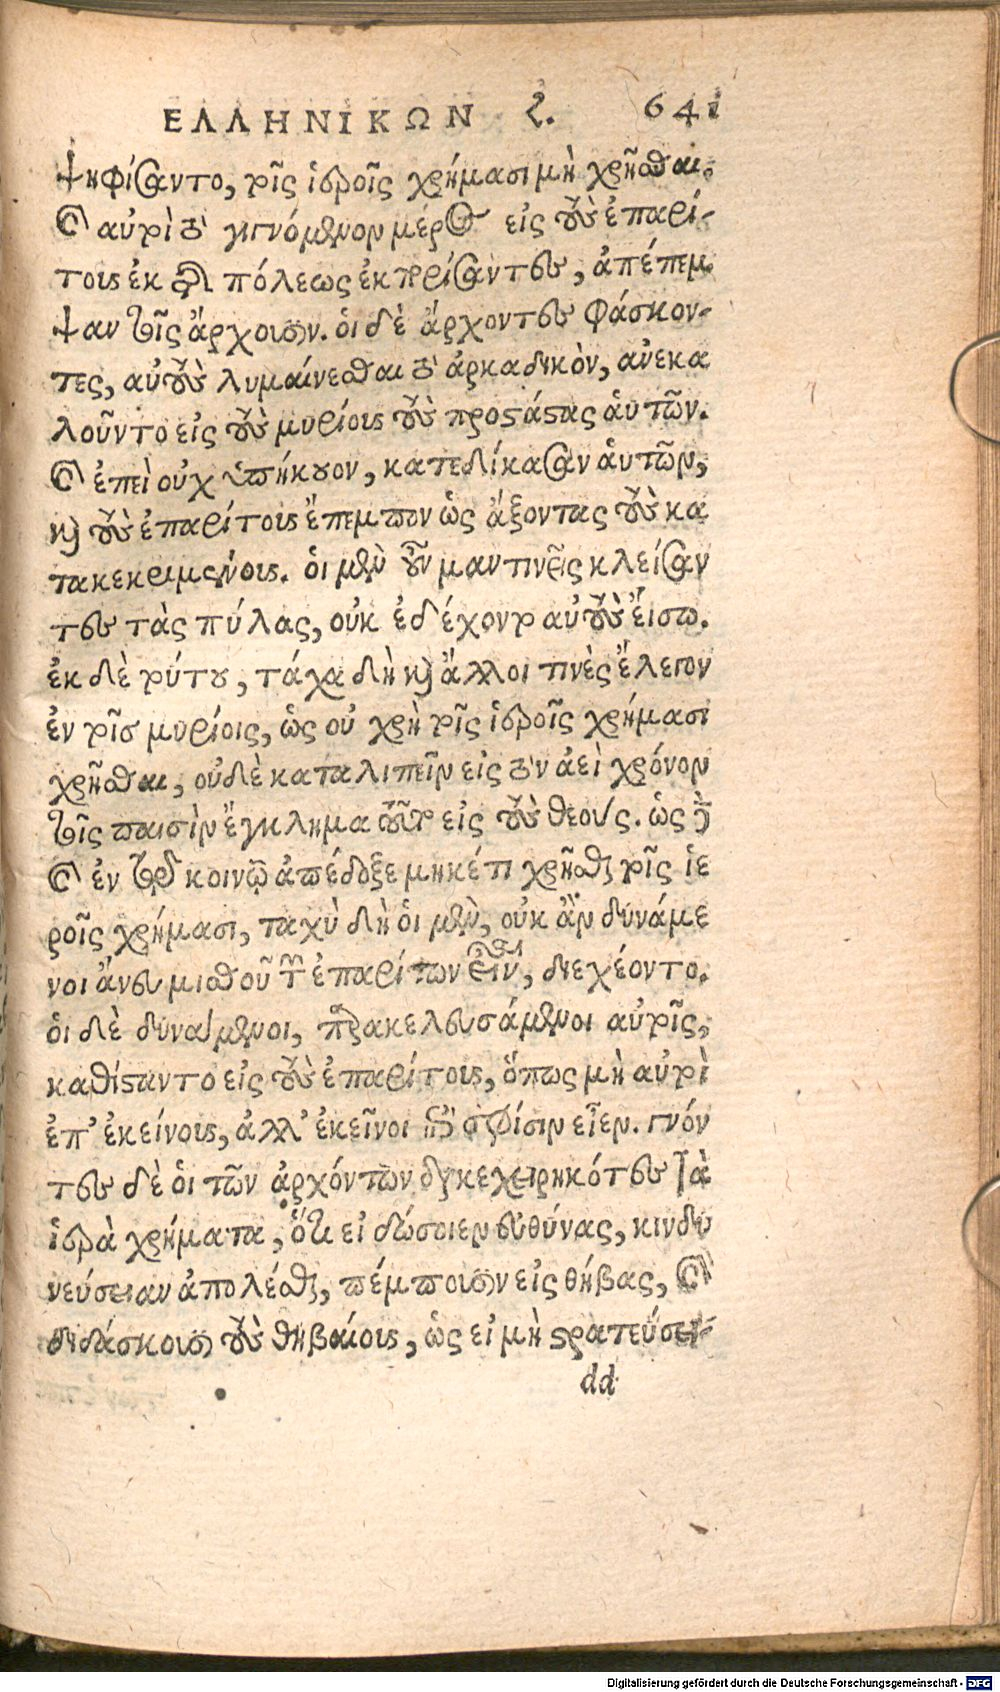 ΕΛΛΗΝΙΚΩΝ ζ. 641
ψηφίσαντο, τοῖς ἱεροῖς χρήμασι μὴ χρῆσθαι.
καὶ αὐτοὶ τὸ γιγνόμενον μέρος εἰς τοὺς ἐπαρί-
τους ἐκ τῆς πόλεως ἐκπορίσαντες, ἀπέπεμ
ψαν τοῖς ἄρχουσιν. οἱ δὲ ἄρχοντες φάσκον-
τες, αὐτοὺς λυμαίνεσθαι τὸ ἀρκαδικὸν, ἀνεκα
λοῦντο εἰς τοὺς μυρίους τοὺς προστάτας αὐτῶν.
καὶ ἐπεὶ οὐχ ὑπήκουον, κατεδίκασαν αὐτῶν,
καὶ τοὺς ἐπαρίτους ἔπεμπον ὡς ἄξοντας τοὺς κα
τακεκριμένους. οἱ μὲν οὖν μαντινεῖς κλείσαν
τες τὰς πύλας, οὐκ ἐδέχοντο αὐτοὺς εἴσω.
ἐκ δὲ τούτου, τάχα δὴ καὶ ἄλλοι τινὲς ἔλεγον
ἐν τοῖς μυρίοις, ὡς οὐ χρὴ τοῖς ἱεροῖς χρήμασι
χρῆσθαι, οὐδὲ καταλιπεῖν εἰς τὸν ἀεὶ χρόνον
τοῖς παισὶν ἔγκλημα τοῦτο εἰς τοὺς θεούς. ὡς δὲ
καὶ ἐν τῷ κοινῷ ἀπέδοξε μηκέτι χρῆσθαι τοῖς ἱε
ροῖς χρήμασι, ταχὺ δὴ οἱ μὲν, οὐκ ἂν δυνάμε
νοι ἄνευ μισθοῦ τῶν ἐπαρίτων εἶναι, διεχέοντο.
οἱ δὲ δυνάμενοι, παρακελευσάμενοι αὐτοῖς,
καθίσταντο εἰς τοὺς ἐπαρίτους, ὅπως μὴ αὐτοὶ
ἐπ' ἐκείνοις, ἀλλ' ἐκεῖνοι ἐπὶ σφίσιν εἶεν. γνόν
τες δὲ οἱ τῶν ἀρχόντων διακεχειρηκότες τὰ
ἱερὰ χρήματα, ὅτι εἰ δώσοιεν εὐθύνας, κινδυ
νεύσειαν ἀπολέσθαι, πέμπουσιν εἰς θήβας, καὶ
διδάσκουσι τοὺς θηβαίους, ὡς εἰ μὴ στρατεύσει-
dd
Digitalisierung gefördert durch die Deutsche Forschungsgemeinschaft - DFG